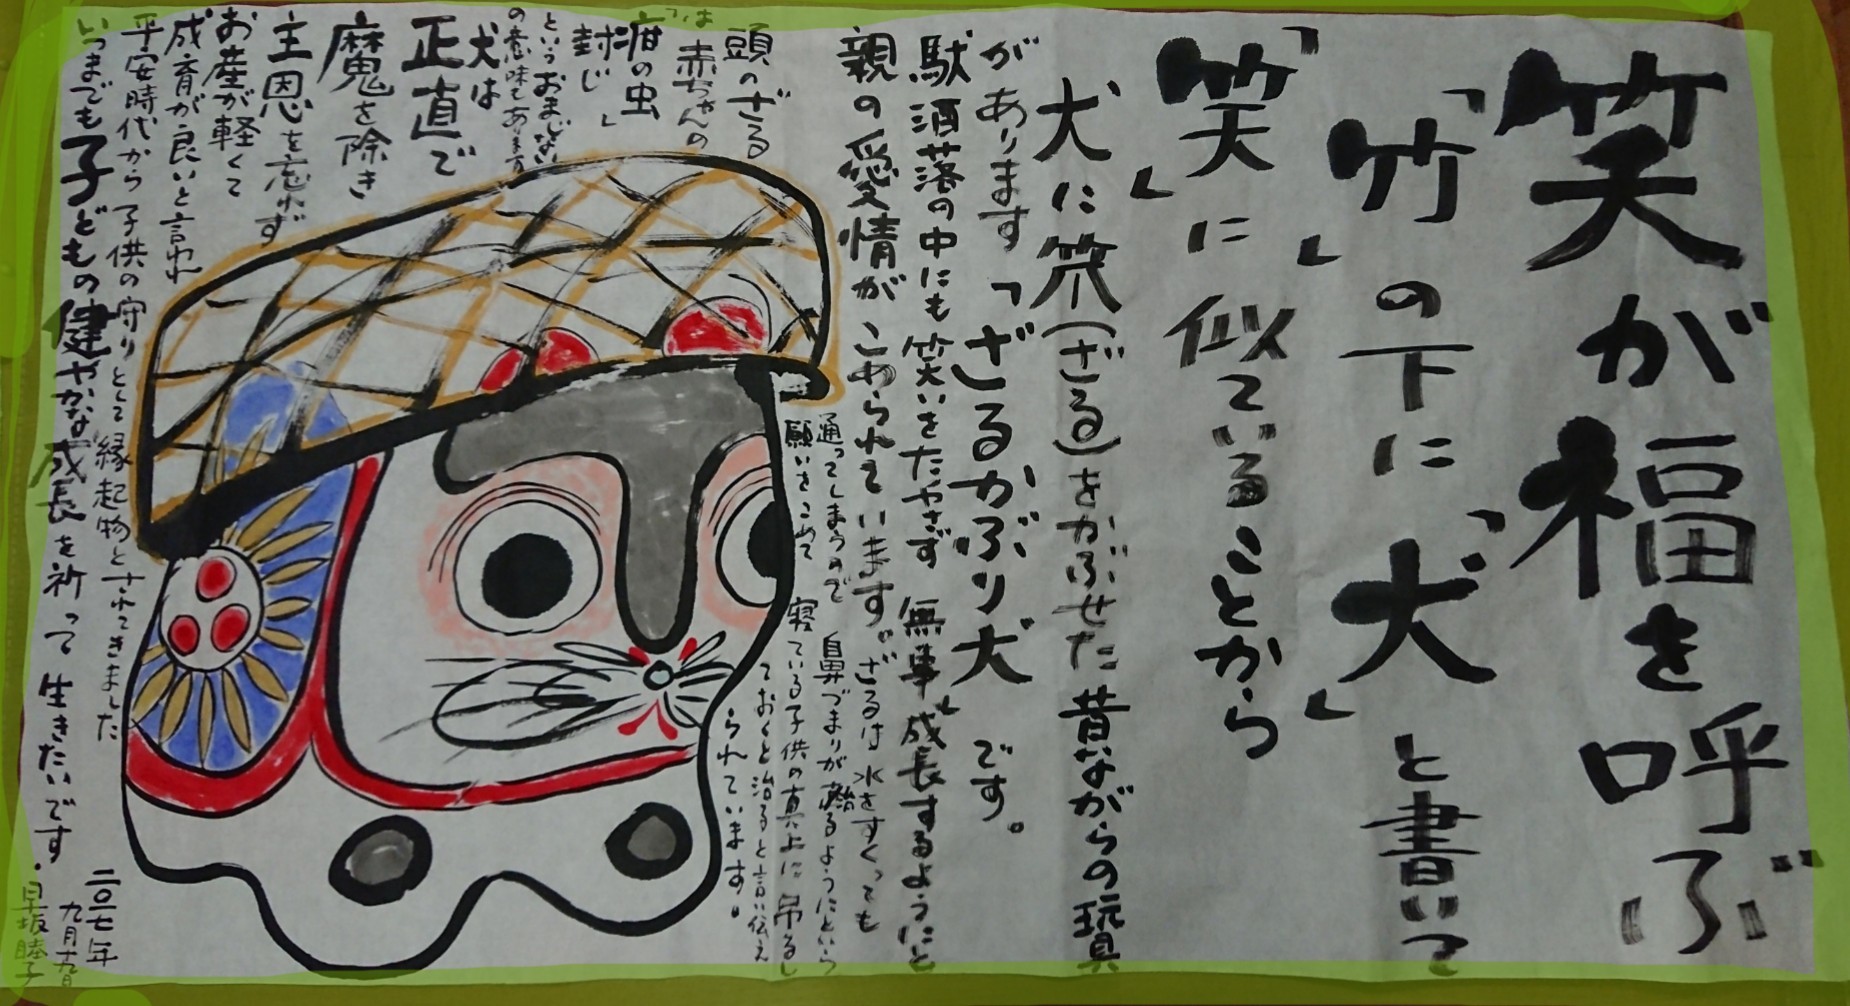 笑が福を呼ぶ
「竹」の下に「犬」と書いて
「笑」に似ていることから
犬に笊(ざる)をかぶせた昔ながらの玩具
があります「ざるかぶり犬」です。
駄洒落の中にも笑いをたやさず無事成長するようにと
親の愛情がこめられています。ざるは水をすくっても
通ってしまうので鼻づまりが治るようにという
願いをこめて寝ている子供の真上に吊るし
ておくと治ると言い伝え
られています。
頭のざる
は赤ちゃんの
「疳の虫
封じ」
というおまじない
の意味もあります
犬は
正直で
魔を除き
主恩を忘れず
お産が軽くて
成育が良いと言われ
平安時代から子供の守りとして縁起物とされてきました
いつまでも子どもの健やかな成長を祈って生きたいです。
二〇一七年
九月十九日
早坂睦子